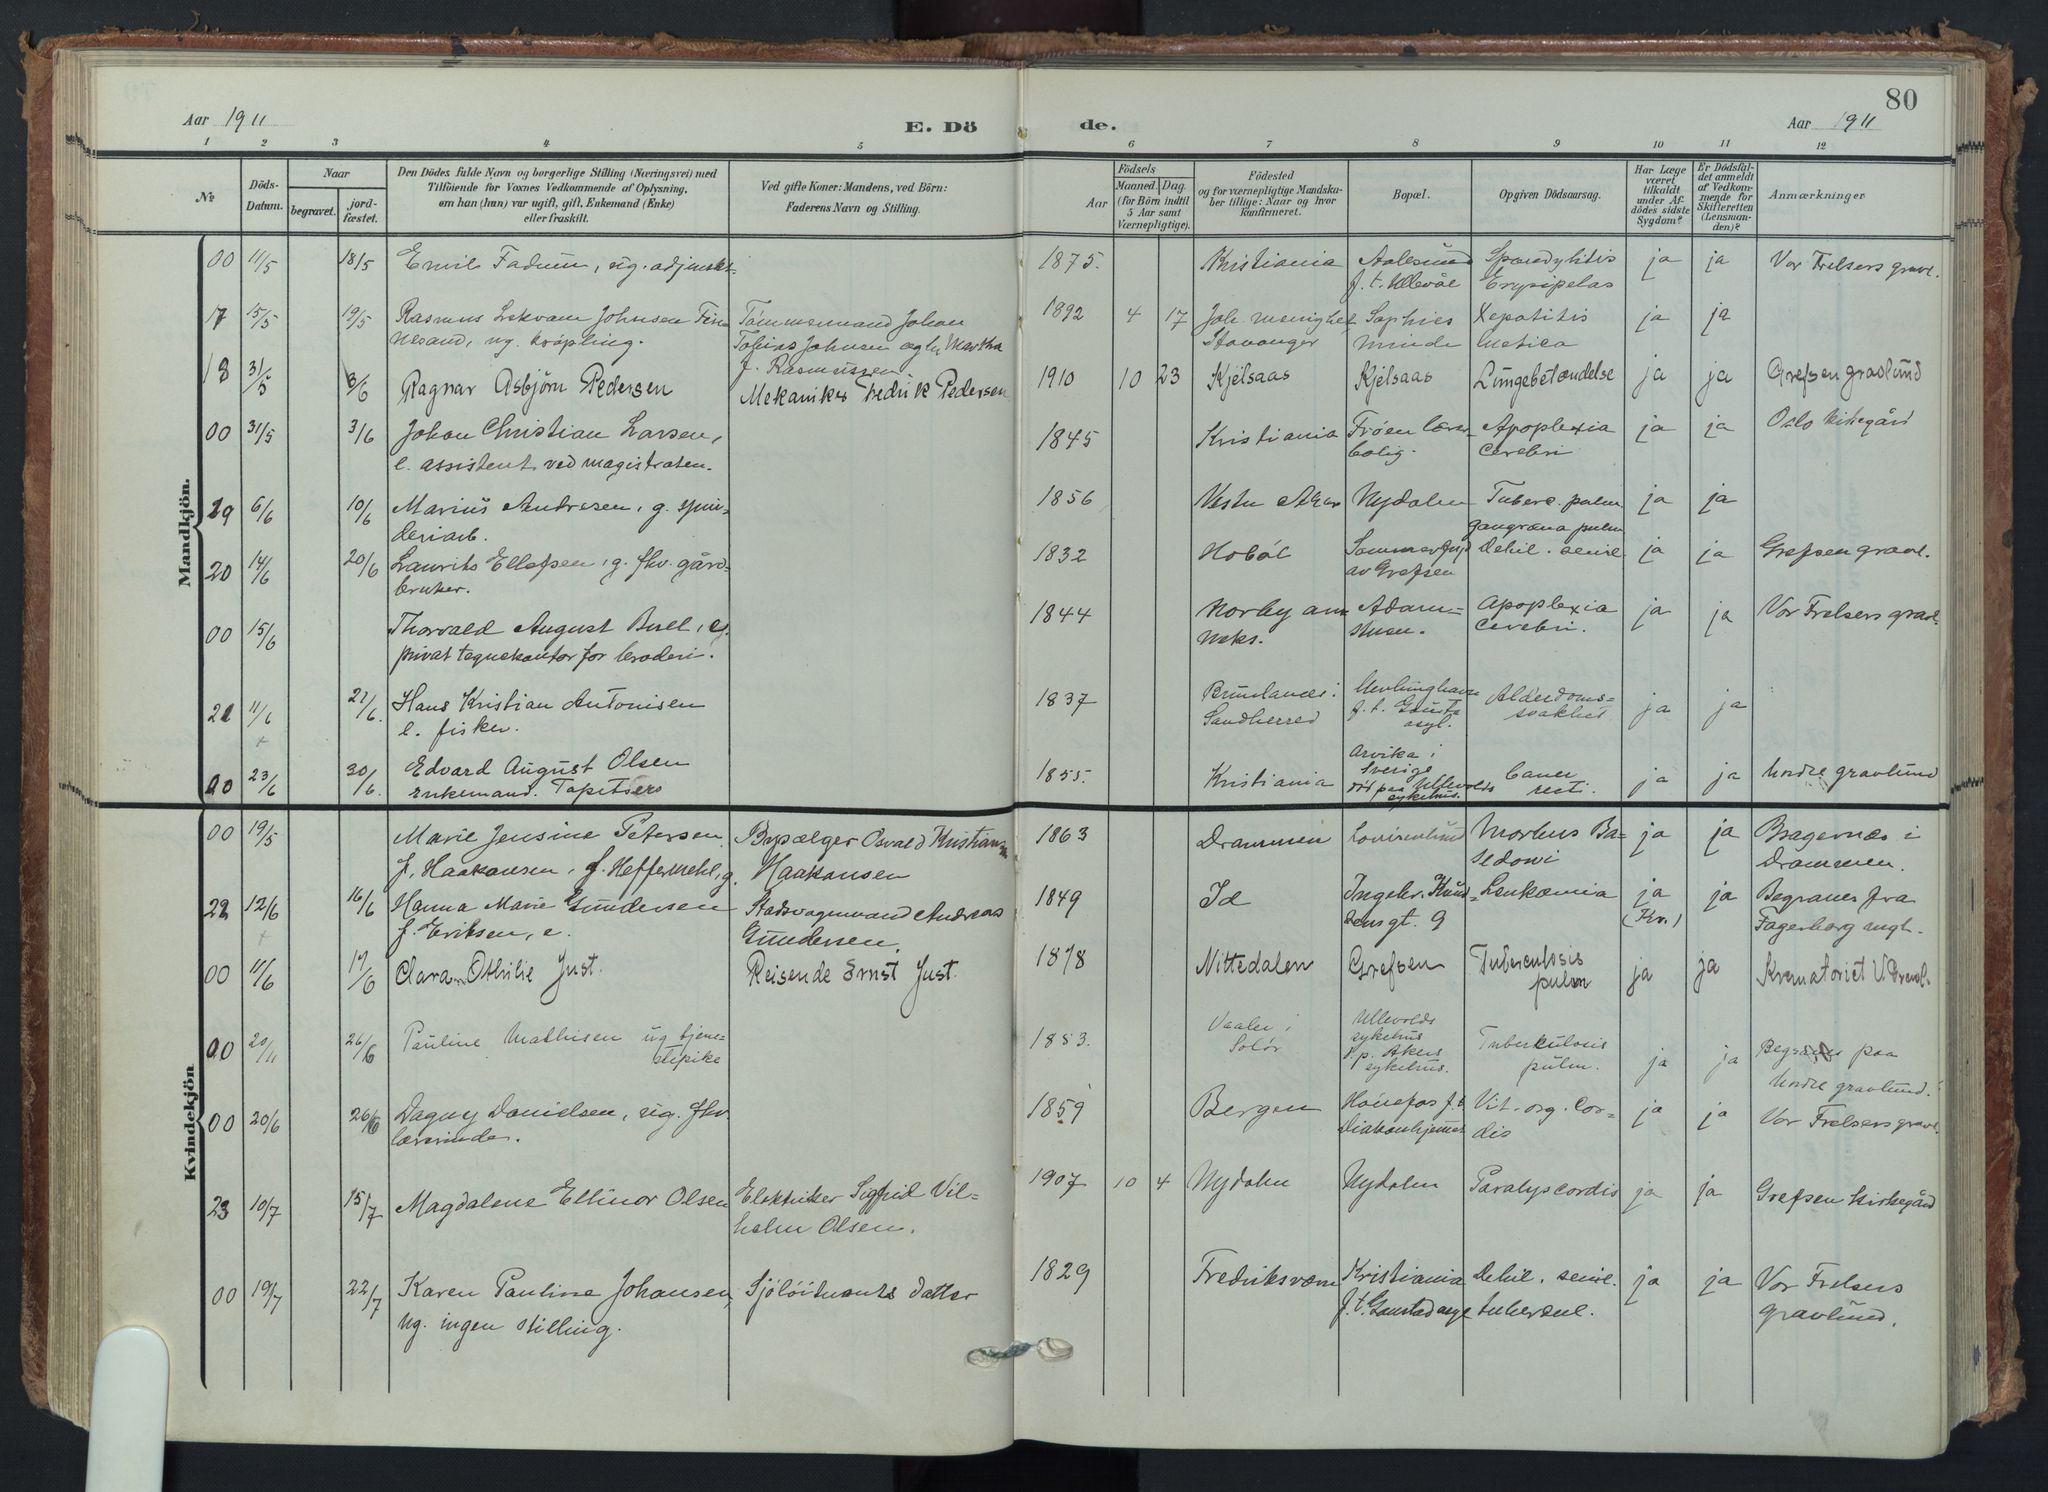 80
Aar 1911
E. Dö
de.
Aar 1911
1 2 3 4 5 6 7 8 9 10 11 12
№
Döds-
Datum.
Naar
begravet.
jord-
fæstet.
Den Dödes fulde Navn og borgerlige Stilling (Næringsvei) med
Tilföiende for Voxnes Vedkommende af Oplysning,
om han (hun) var ugift, gift, Enkemand (Enke)
eller fraskilt.
Ved gifte Koner: Mandens, ved Börn:
Faderens Navn og Stilling.
Födsels
Aar
Maaned. Dag.
(for Börn indtil
5 Aar samt
Værnepligtige).
Födested
og for værnepligtige Mandska-
ber tillige: Naar og hvor
konfirmeret.
Bopæl.
Opgiven Dödsaarsag.
Har Læge
været
tilkaldt
under Af-
dödes sidste
Sygdom?
Er Dödsfal-
det anmeldt
af Vedkom-
mende for
Skifteretten
(Lensman-
den)?
Anmærkninger
Mandkjön.
00 11/5 18/5 Emil Fadum, ug. adjunkt 1875. Kristiania Aalesund Spondylitis ja ja Vor Frelsers gravl.
f. t. Ullevål Erysipelas
17 15/5 19/5 Rasmus Lekvam Johnsen Fin- Tømmermand Johan 1892 4 17 Joh. menighet Sophies ja ja
nesand, ug. krøpling. Tobias Johnsen og Martha Stavanger minde luetica
f. Rasmussen
18 31/5 3/6 Ragnar Asbjörn Pedersen Mekaniker Fredrik Pedersen 1910 10 23 Kjelsaas Kjelsaas Lungebetændelse ja ja Grefsen gravlund
00 31/5 3/6 Johan Christian Larsen, 1845 Kristiania Frøen Apoplexia ja ja Oslo kirkegård
e. assistent ved magistraten. bolig. cerebri
19 6/6 10/6 Marius Andresen, g. spin- 1856 Vestre Aker Nydalen Tuberc. pulm. ja ja
deriarb. gangræna pulm
20 14/6 20/6 Laurits Ellefsen, g. fhv. gård- 1832 Hobøl Debil. senil. ja ja Grefsen gravl.
bruker. av Grefsen
00 15/6 Thorvald August 1844 Norby an- Adam- Apoplexia ja ja Vor Frelsers gravl.
privat tegnekontor for broderi. neks. stuen. cerebri.
21 11/6 21/6 Hans Kristian Antonisen 1837 Brunlanes i Alderdoms- ja ja
e. fisker. Sandherred f. t. Gaust. svakhet
asyl.
00 23/6 30/6 Edvard August Olsen 1855. Kristiania Arvika i Cancer ja ja Nordre gravlund
Enkemand. Tapetserer Sverige recti.
død paa Ullevolds
sykehus.
Kvindekjön
00 19/5 Marie Jensine Petersen Bypælger Osvald Kristian 1863 Drammen Lovisenlund Morbus Ba- ja ja Bragernæs i
f. Haakonsen, f. Heffermehl, g. Haakonsen sedowi Drammen.
22 12/6 16/6 Hanna Marie Gundersen Stadsvognmand Andreas 1849 Id Ingebr. Knud- Leukæmia ja ja Begraves fra
f. Eriksen, e. Gundersen. sensgt. 9 (Kr.) Fagerborg mgh.
00 11/6 17/6 Clara Othilie Just. Reisende Ernst Just. 1878 Nittedalen Grefsen Tuberculosis ja ja Krematoriet V. Gravl.
pulm
00 20/6 26/6 Pauline Mathisen ug tjene- 1883. Vaaler i Ullevolds Tuberkulosis ja ja Begraves paa
stepike Solør sykehus pulm. Nordre gravlund.
p. Akers
sykehus.
00 20/6 26/6 Dagny Danielsen, ug. fhv. 1859 Bergen Hønefos f. t. Vit. org. cor- ja ja Vor Frelsers gravl.
lærerinde. Diakonhjemmet dis
23 10/7 15/7 Magdalene Ellinor Olsen Elektriker Sigfrid Vil- 1907 10 4 Nydalen Nydalen Paralys cordis ja ja Grefsen kirkegård
helm Olsen.
00 19/7 22/7 Karen Pauline Johansen, Sjöløitnants datter 1829 Fredriksværn Kristiania Debil. senil. ja ja Vor Frelsers
ug. ingen stilling. f. t. Gaustad asyl tubercul. gravlund.